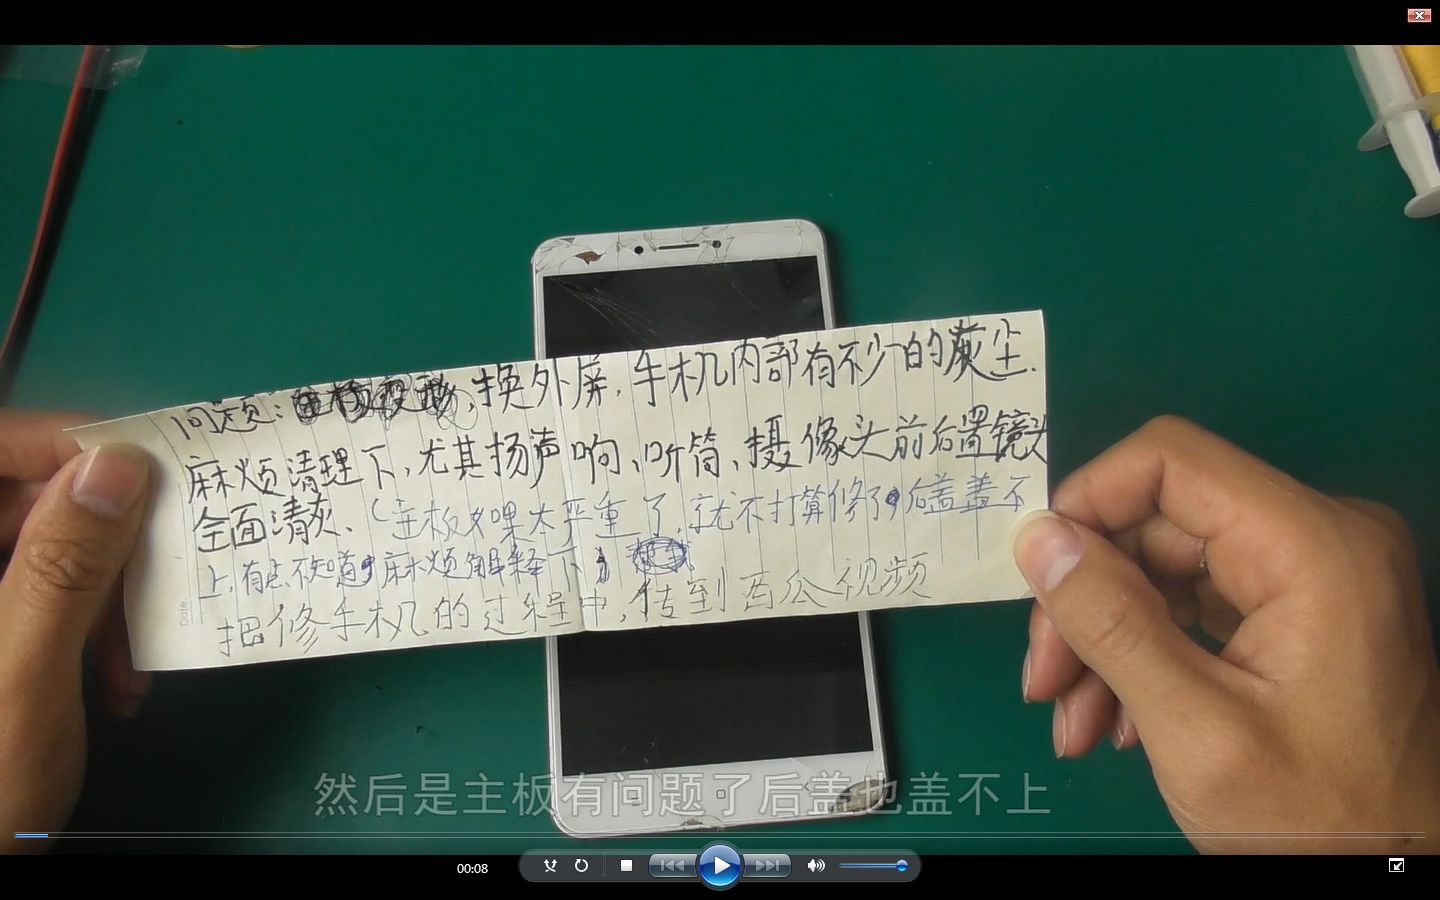 问题:换外屏,手机内部有不少的灰尘.
麻烦清理下,尤其扬声响、听筒、摄像头前后置镜头
全面清灰.(主板如果太严重了,就不打算修了,后盖盖不
上,有点不知道,麻烦解释下)
把修手机的过程中,转到西瓜视频
Date
然后是主板有问题了后盖也盖不上
00:08